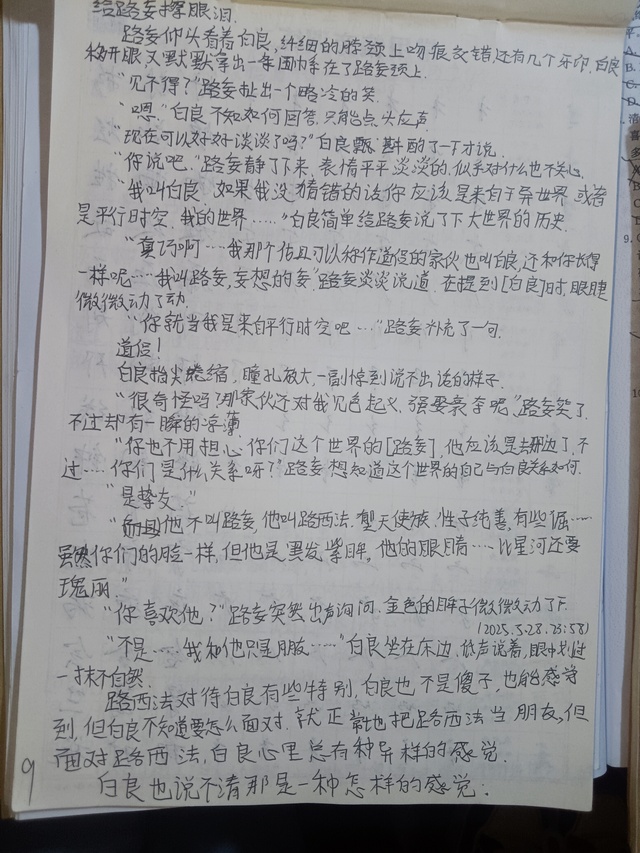 给路妄擦眼泪.
路妄仰头看着白良,纤细的脖颈上吻痕交错,还有几个牙印.白良
移开眼又默默拿出一条围巾系在了路妄颈上.
“见不得?”路妄扯出一个略冷的笑.
“嗯.”白良不知如何回答.只能点头应声.
“现在可以好好谈谈了吗?”白良斟酌了一下才说.
“你说吧.”路妄静了下来,表情平平淡淡的,似乎对什么也不关心.
“我叫白良.如果我没猜错的话你应该是来自于异世界.或者
是平行时空.我的世界……”白良简单给路妄说了下大世界的历史.
“真巧啊……我那个姑且可以称作道侣的家伙也叫白良,还和你长得
一样呢……我叫路妄,妄想的妄.”路妄淡淡说道.在提到[白良]时,眼睫
微微微动了动.
“你就当我是来自平行时空吧…”路妄补充了一句.
道侣!
白良指尖蜷缩,瞳孔放大,一副惊到说不出话的样子.
“很奇怪吗?那家伙还对我见色起义.强娶豪夺呢.”路妄笑了.
不过却有一瞬的落薄.
“你也不用担心.你们这个世界的[路妄],他应该是去那边了.不
过……你们是什么关系呀?”路妄想知道这个世界的自己与白良关系如何.
“是挚友.”
“而且他不叫路妄,他叫路西法.堕天使族.性子纯善,有些倔……
虽然你们的脸一样,但他是黑发紫眸.他的眼睛……比星河还要
瑰丽.”
“你喜欢他?”路妄突然出声询问.金色的眸子微微微动了下.
(2025.5.28.23:58)
“不是……我和他只是朋友……”白良坐在床边.低声说着,眼中划过
一抹不自然.
路西法对待白良有些特别,白良也不是傻子,也能感觉
到,但白良不知道要怎么面对.就正常也把路西法当朋友,但
面对路西法,白良心里总有种异样的感觉.
白良也说不清那是一种怎样的感觉.
9